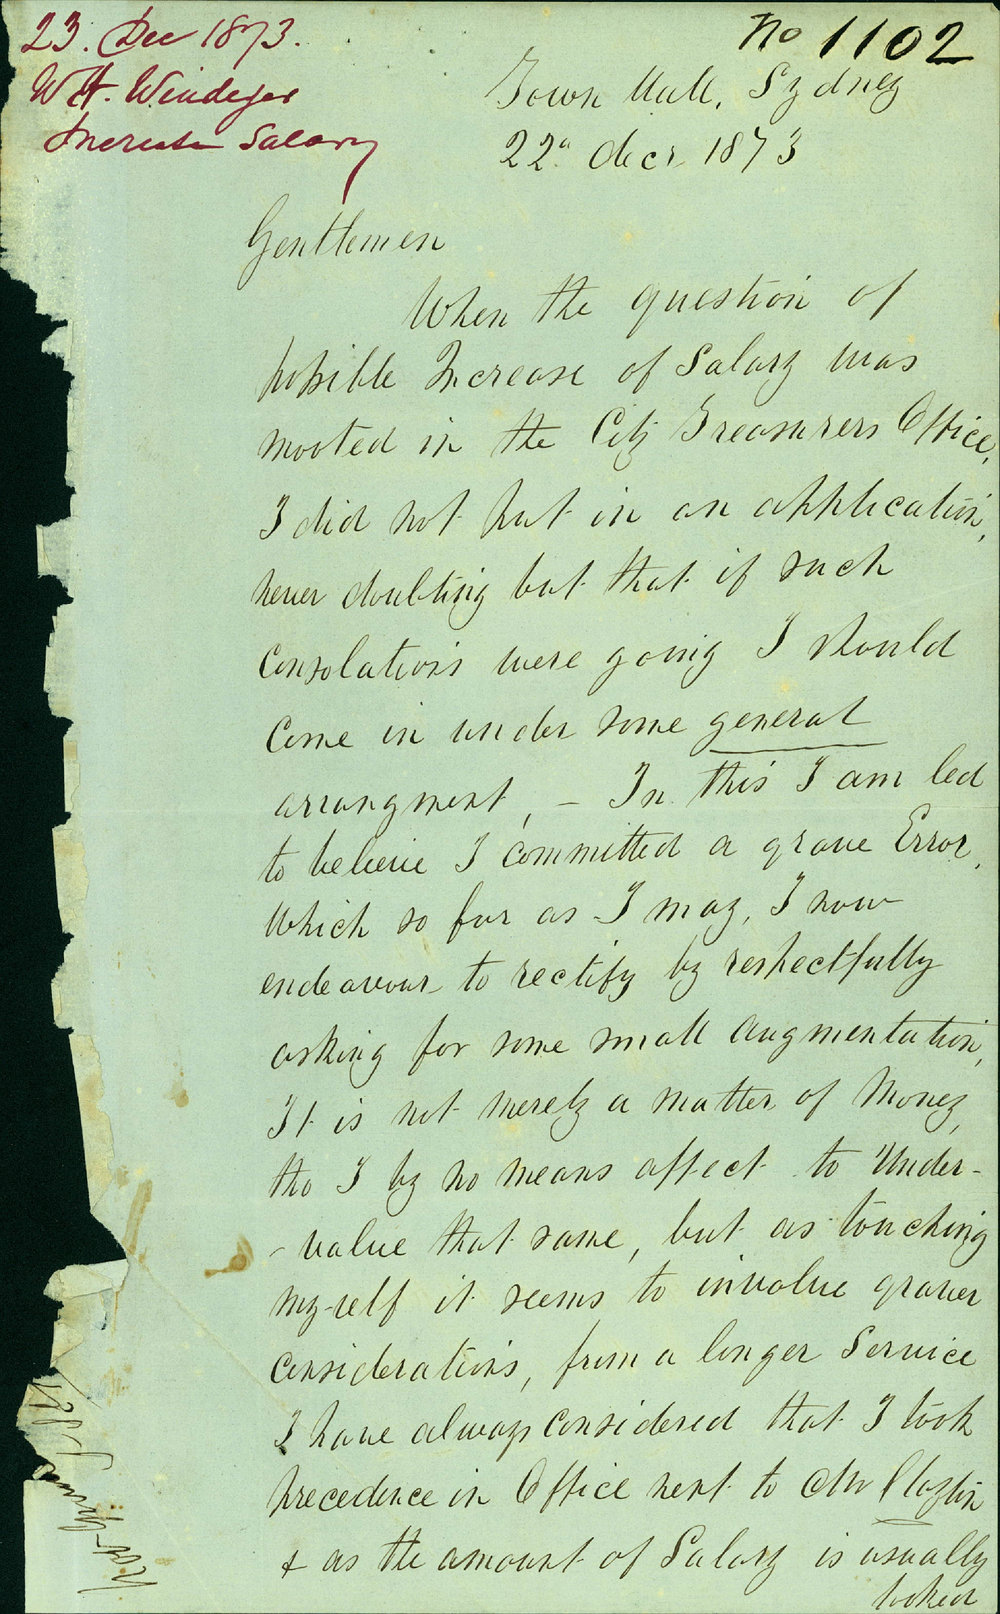 23. Dec 1873.
W H. Windeyer
Increase Salary
No 1102
Town Hall, Sydney
22d decr 1873
Gentlemen
When the question of
possible Increase of Salary was
mooted in the City Treasurers Office,
I did not put in an application,
never doubting but that if such
consolations were going I should
Come in under some general
arrangment, – In this I am led
to believe I committed a grave Error,
Which so far as I may, I now
endeavour to rectify by respectfully
asking for some small augmentation,
It is not merely a matter of Money,
tho I by no means affect to Under-
- value that same, but as touching
myself it seems to involve graver
Considerations, from a longer Service
I have always considered that I took
precedence in Office next to Mr
& as the amount of Salary is usually
looked